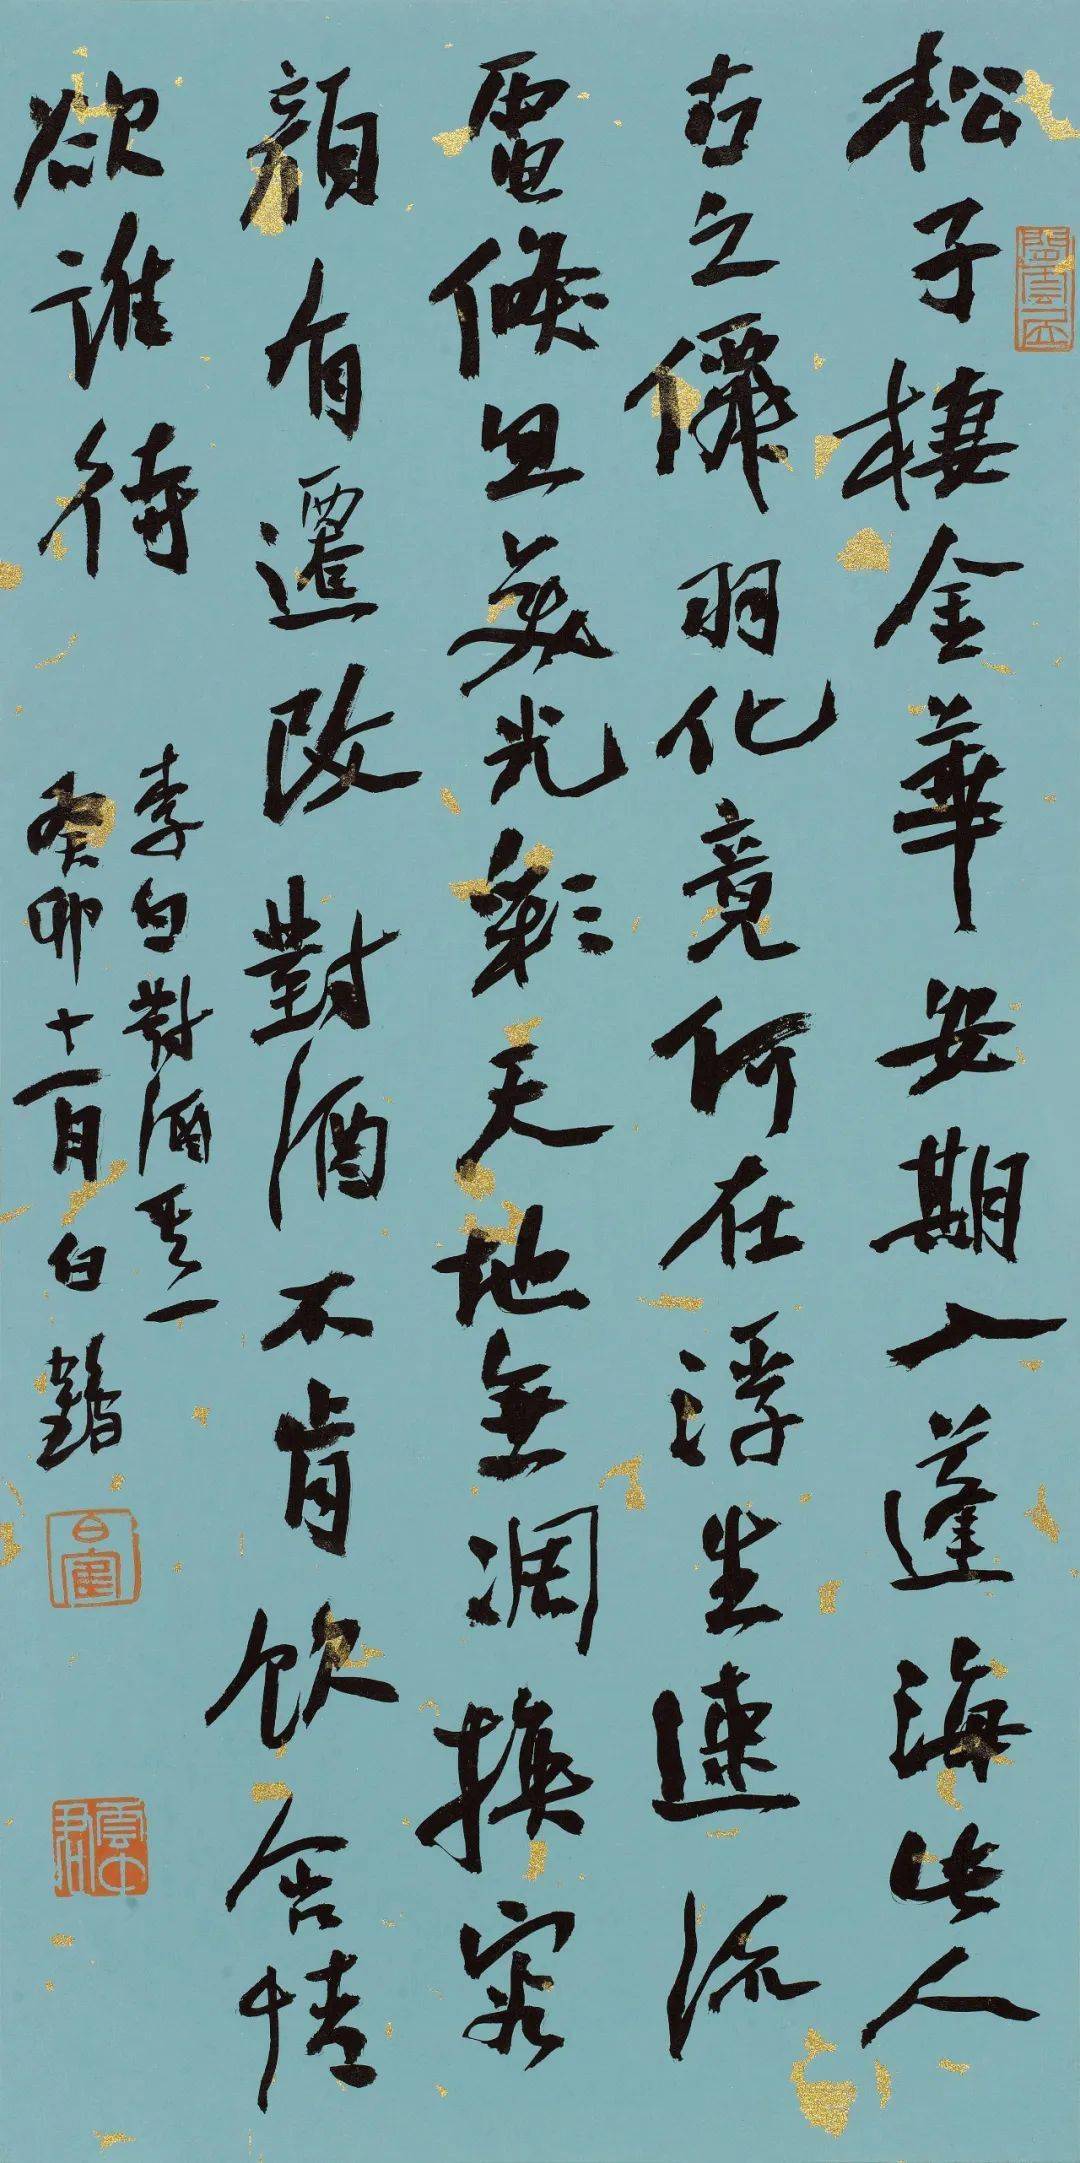 松子棲金華安期入蓬海此人
古之僊羽化竟何在浮生速流
電倏忽變光彩天地無凋換容
顏有遷改對酒不肯飲含情
欲誰待
李白對酒其一
癸卯十一月白
雲中君